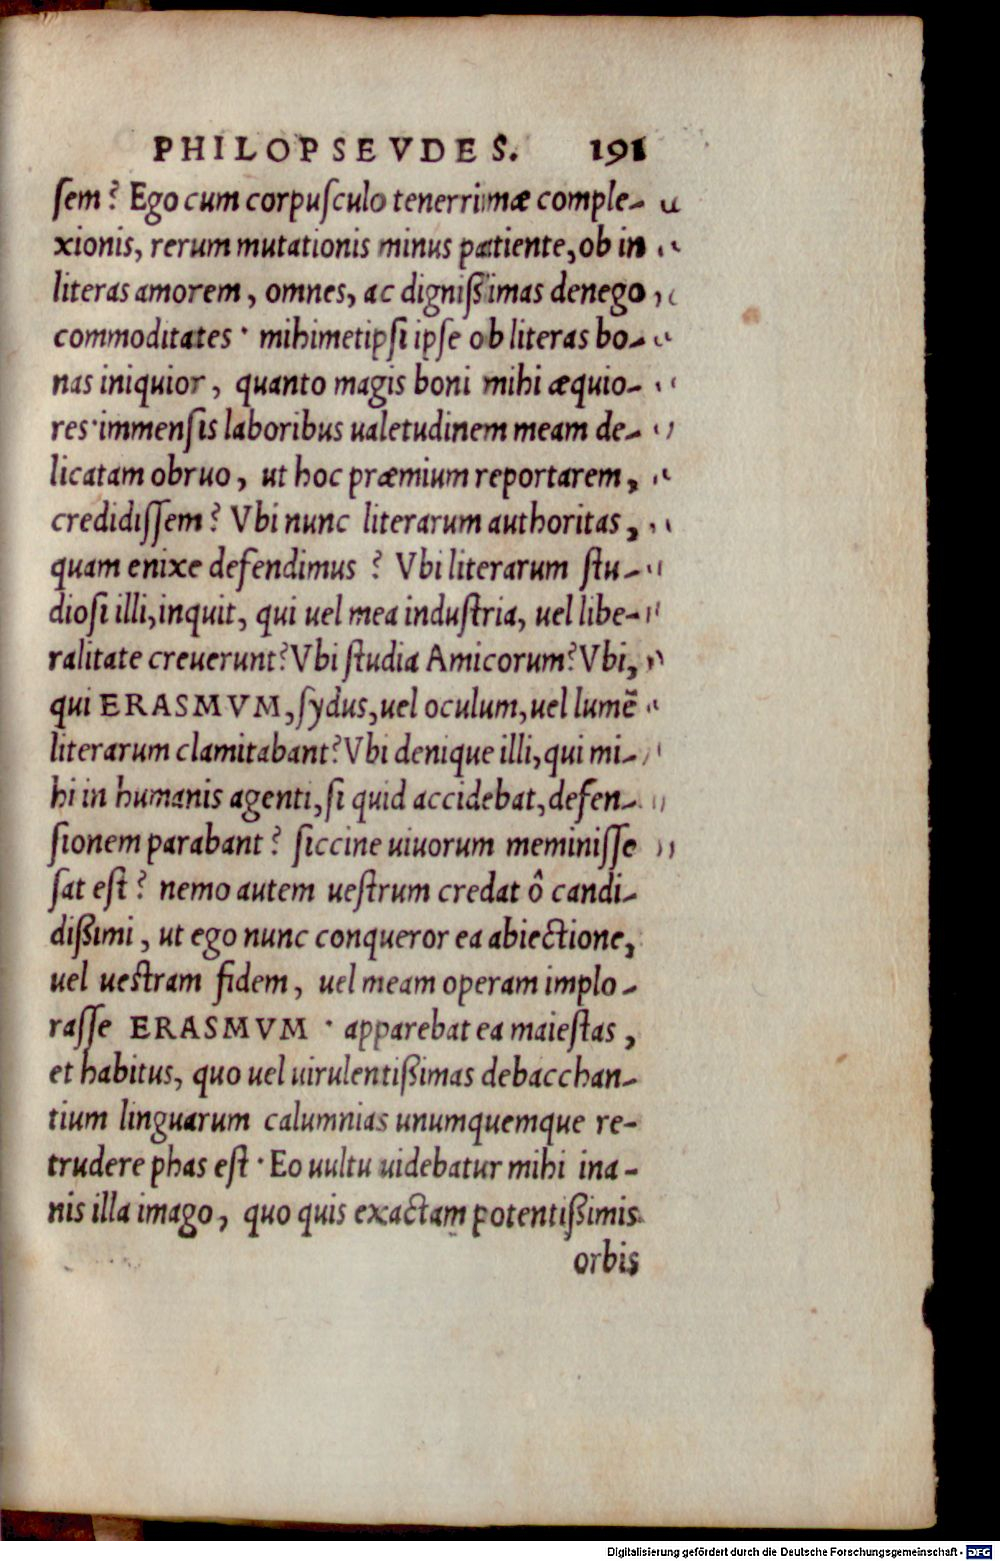 PHILOPSEVDES. 191
sem? Ego cum corpusculo tenerrimæ comple-
xionis, rerum mutationis minus patiente, ob in
literas amorem, omnes, ac dignißimas denego
commoditates · mihimetipsi ipse ob literas bo-
nas iniquior, quanto magis boni mihi æquio-
res·immensis laboribus ualetudinem meam de-
licatam obruo, ut hoc præmium reportarem,
credidissem? Vbi nunc literarum authoritas,
quam enixe defendimus ? Vbi literarum stu-
diosi illi, inquit, qui uel mea industria, uel libe-
ralitate creuerunt? Vbi studia Amicorum? Vbi,
qui ERASMVM, sydus, uel oculum, uel lumē
literarum clamitabant? Vbi denique illi, qui mi-
hi in humanis agenti, si quid accidebat, defen-
sionem parabant? siccine uiuorum meminisse
sat est? nemo autem uestrum credat ô candi-
dißimi, ut ego nunc conqueror ea abiectione,
uel uestram fidem, uel meam operam implo-
rasse ERASMVM · apparebat ea maiestas,
et habitus, quo uel uirulentißimas debacchan-
tium linguarum calumnias unumquemque re-
trudere phas est · Eo uultu uidebatur mihi ina-
nis illa imago, quo quis exactam potentißimis
orbis
Digitalisierung gefördert durch die Deutsche Forschungsgemeinschaft - DFG